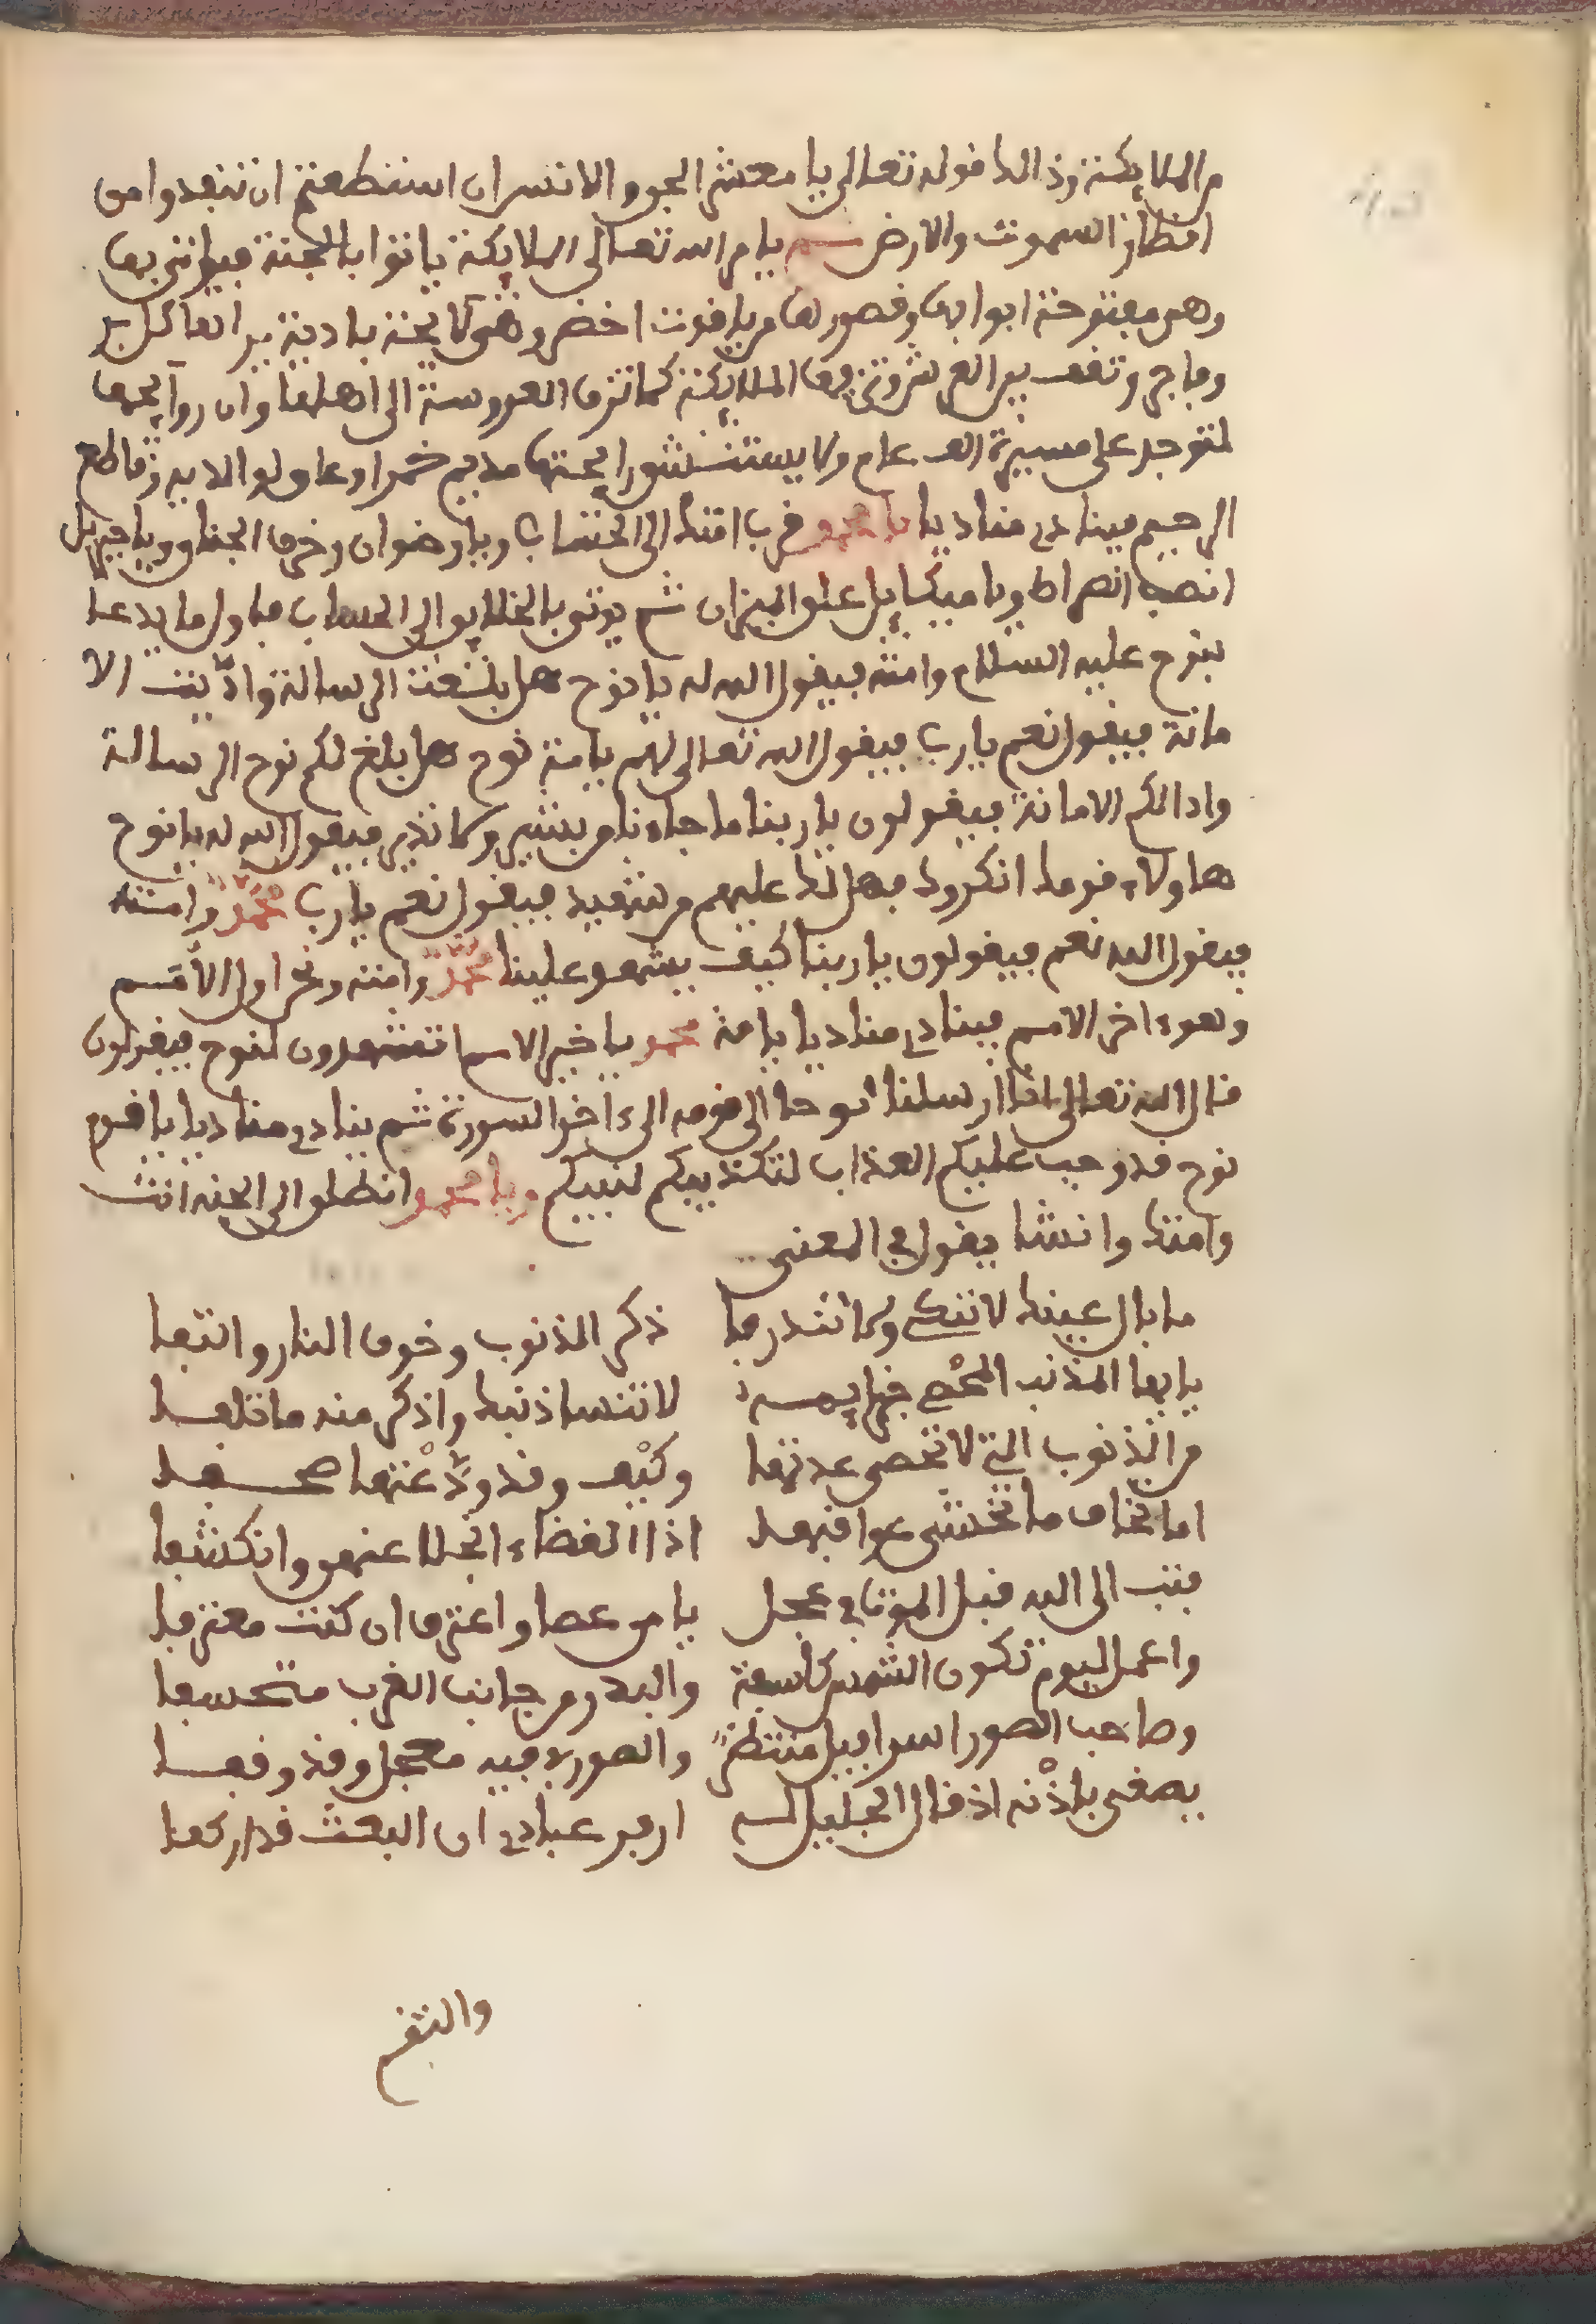 من الملايكة وذالك قوله تعالى يا معشر الجن والانس ان استطعتم ان تنفدوا من
اقطار السموت والارض ثم يامر الله تعالى الملايكة ياتوا بالجنة فيواتى بها
وهى مفتوحة ابوابها وقصورها من ياقوت اخضر وهى لايحة بادية يراها كل بر
وفاجر وتقف بين العرش وتزفها الملايكة كما تزف العروسة الى اهلها وان روايحها
لتوجد على مسيرة الف عام ولا يستنشق رايحتها مديم خمرا وعاق والديه وقاطع
الرحيم فينادي مناديا يا محمد قرب امتك الى الحساب ويا رضوان زخرف الجنان ويا جبريل
انصب الصراط ويا ميكايل علق الميزان ثم يوتى بالخلايق الى الحساب فاول ما يدعا
بنوح عليه السلام وامته فيقول الله له يا نوح هل بلغت الرسالة واديت الا
مانة فيقول نعم يا رب فيقول الله تعالى لهم يا امة نوح هل بلغ لكم نوح الرسالة
وادا لكم الامانة فيقولون يا ربنا ما جاءنا من بشير ولا نذير فيقول الله له يا نوح
هاولاء قومك انكروك فهل لك عليهم من شهيد فيقول نعم يا رب محمد وامته
فيقول الله نعم فيقولون يا ربنا كيف يشهد علينا محمد وامته ونحن اول الأمم
وهو ءاخر الامم فينادي مناديا يا امة محمد يا خير الامم اتشهدون لنوح فيقولون
قال الله تعالى انا ارسلنا نوحا الى قومه الى ءاخر السورة ثم ينادي مناديا يا قوم
نوح قد وجب عليكم العذاب لتكذيبكم لنبيكم ويا محمد انطلق الى الجنه انت
وامتك وانشا يقول في المعنى
ما بال عينك لا تبكي ولا تذرفا ذكر الذنوب وخوف النار والتها
يا ايها المذنب المحصي جرايمه لا تنسا ذنبك واذكر منه ما سلفا
من الذنوب التي لا تحصى عدتها وكيف وقد ودعتها صحفا
اما تخاف ما تخشى عواقبها اذا الغطاء انجلا عنهن وانكشفا
فتب الى الله قبل الموت في عجل يا من عصا واعترف ان كنت معترفا
واعمل ليوم تكون الشمس كاسفة والبدر من جانب الغرب منخسفا
وصاحب الصور اسرافيل منتظر والصور في فيه معجل وقد وقفا
يصغى باذنه اذ قال الجليل له ازجر عبادي ان البعث قد ازفا
والتقم